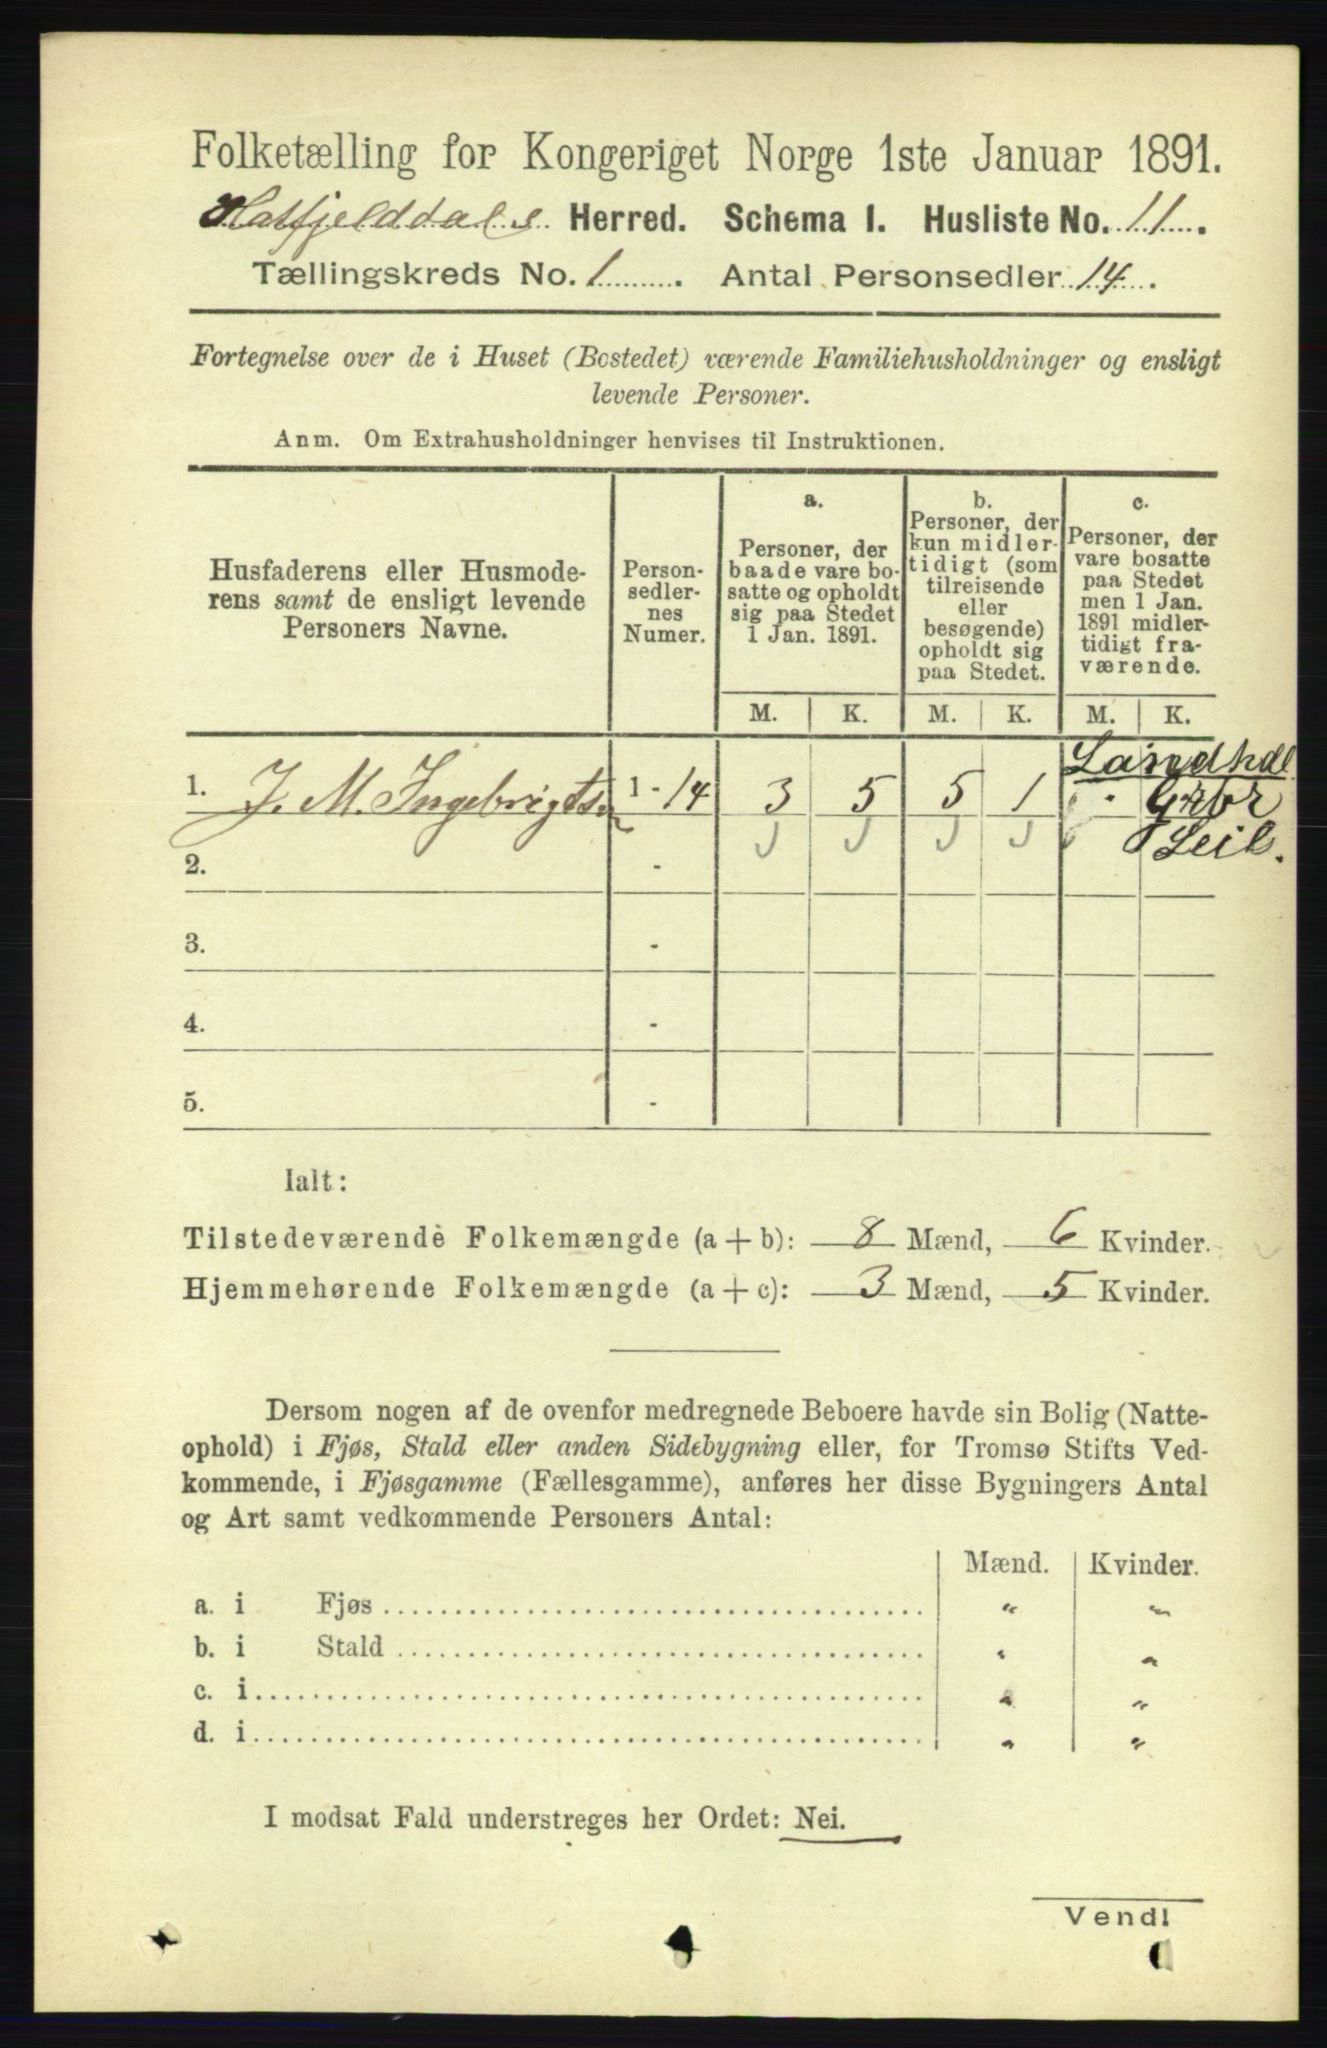 Folketælling for Kongeriget Norge 1ste Januar 1891.
Hatfjelddals Herred. Schema I. Husliste No. 11.
Tællingskreds No. 1. Antal Personsedler 14.
Fortegnelse over de i Huset (Bostedet) værende Familiehusholdninger og ensligt
levende Personer.
Anm. Om Extrahusholdninger henvises til Instruktionen.
Husfaderens eller Husmode-
rens samt de ensligt levende
Personers Navne.
Person-
sedler-
nes
Numer.
a.
Personer, der
baade vare bo-
satte og opholdt
sig paa Stedet
1 Jan. 1891.
b.
Personer, der
kun midler-
tidigt (som
tilreisende
eller
besøgende)
opholdt sig
paa Stedet.
c.
Personer, der
vare bosatte
paa Stedet
men 1 Jan.
1891 midler-
tidigt fra-
værende.
M. K. M. K. M. K.
Landhdl
1. J. M. Ingebrigtsen 1 - 14 3 5 5 1 - Grbr
Leil.
2. -
3. -
4. -
5. -
Ialt:
Tilstedeværende Folkemængde (a + b): 8 Mænd, 6 Kvinder.
Hjemmehørende Folkemængde (a + c): 3 Mænd, 5 Kvinder.
Dersom nogen af de ovenfor medregnede Beboere havde sin Bolig (Natte-
ophold) i Fjøs, Stald eller anden Sidebygning eller, for Tromsø Stifts Ved-
kommende, i Fjøsgamme (Fællesgamme), anføres her disse Bygningers Antal
og Art samt vedkommende Personers Antal:
Mænd. Kvinder.
a. i Fjøs " "
b. i Stald " "
c. i " "
d. i " "
I modsat Fald understreges her Ordet: Nei.
Vendl